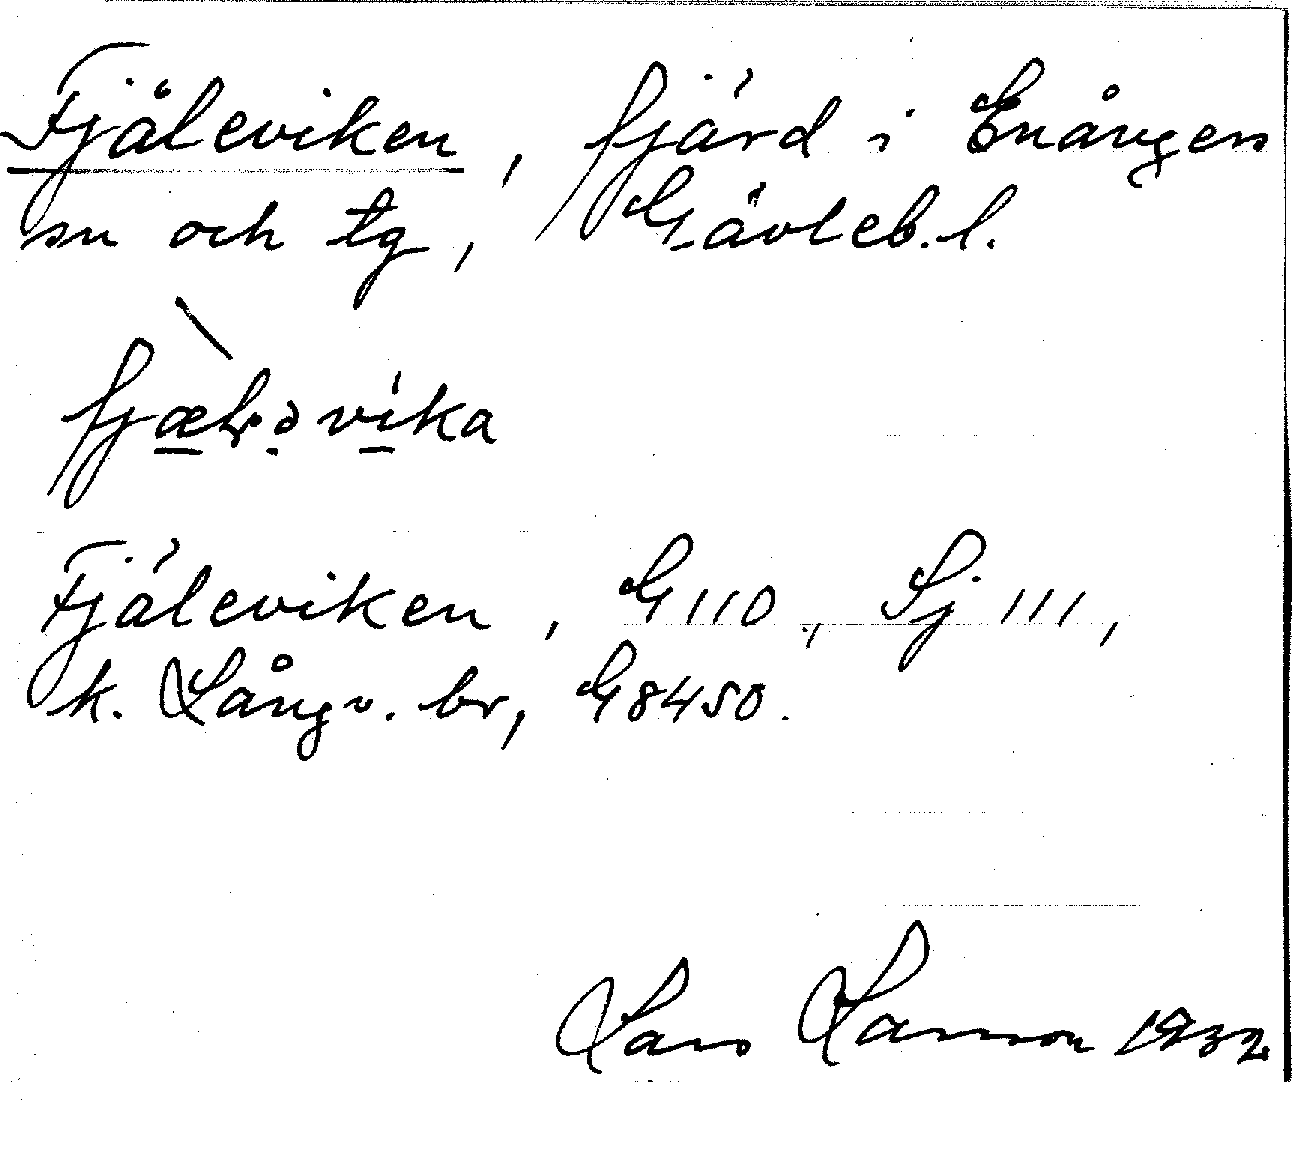 Fjäleviken, fjärd i Enångers
sn och tg, Gävleb. l.
fjæləvika
Fjäleviken, G 110, Sj 111,
k. Långv. br, G 8450.
Lars Larsson 1932